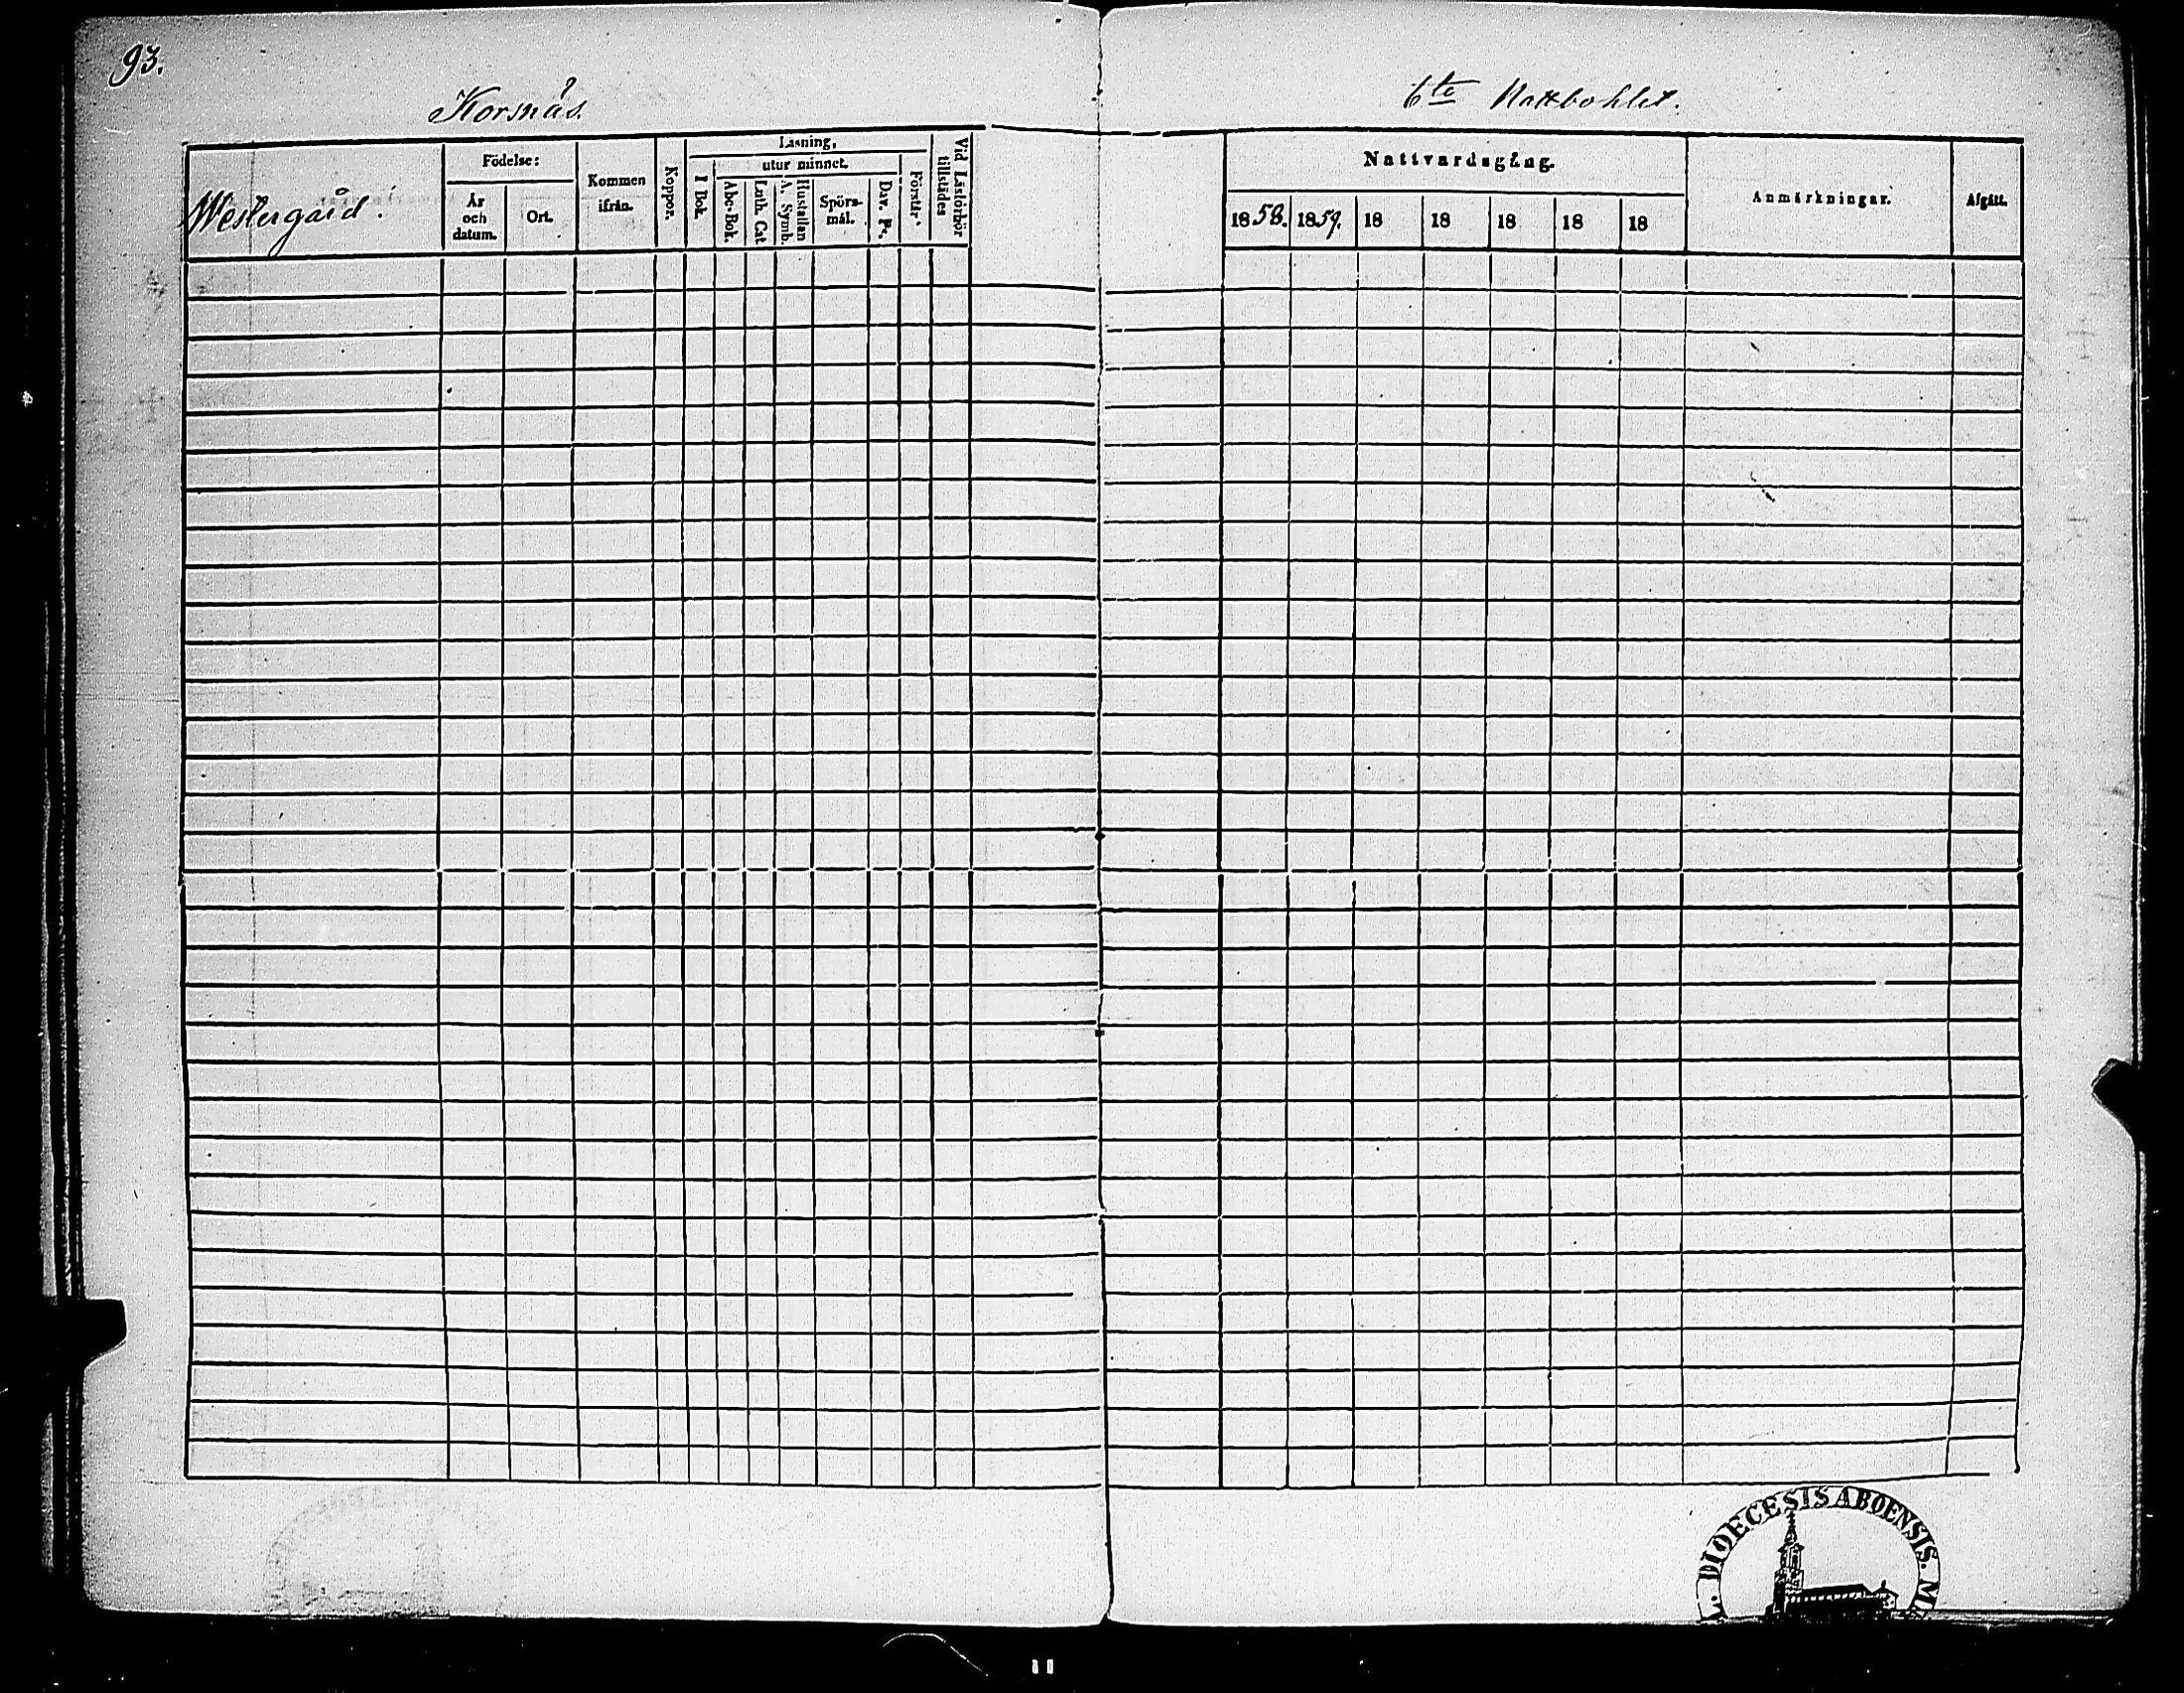 93.
Korsnäs.
6te Nattbohlet.
Westergård.
Födelse:
År
och
datum.
Ort.
Kommen
ifrån.
Koppor.
Läsning,
utur minnet.
I Bok.
Abc-Bok.
Luth. Cat.
Hustaflan
A. Symb.
Spörs-
mål.
Dav. Ps.
Förstår.
Vid Läsförhör
tillstädes
Nattvardsgång.
1858. 1859. 18 18 18 18 18
Anmärkningar.
Afgått.
DIOECESIS ABOENSIS. M